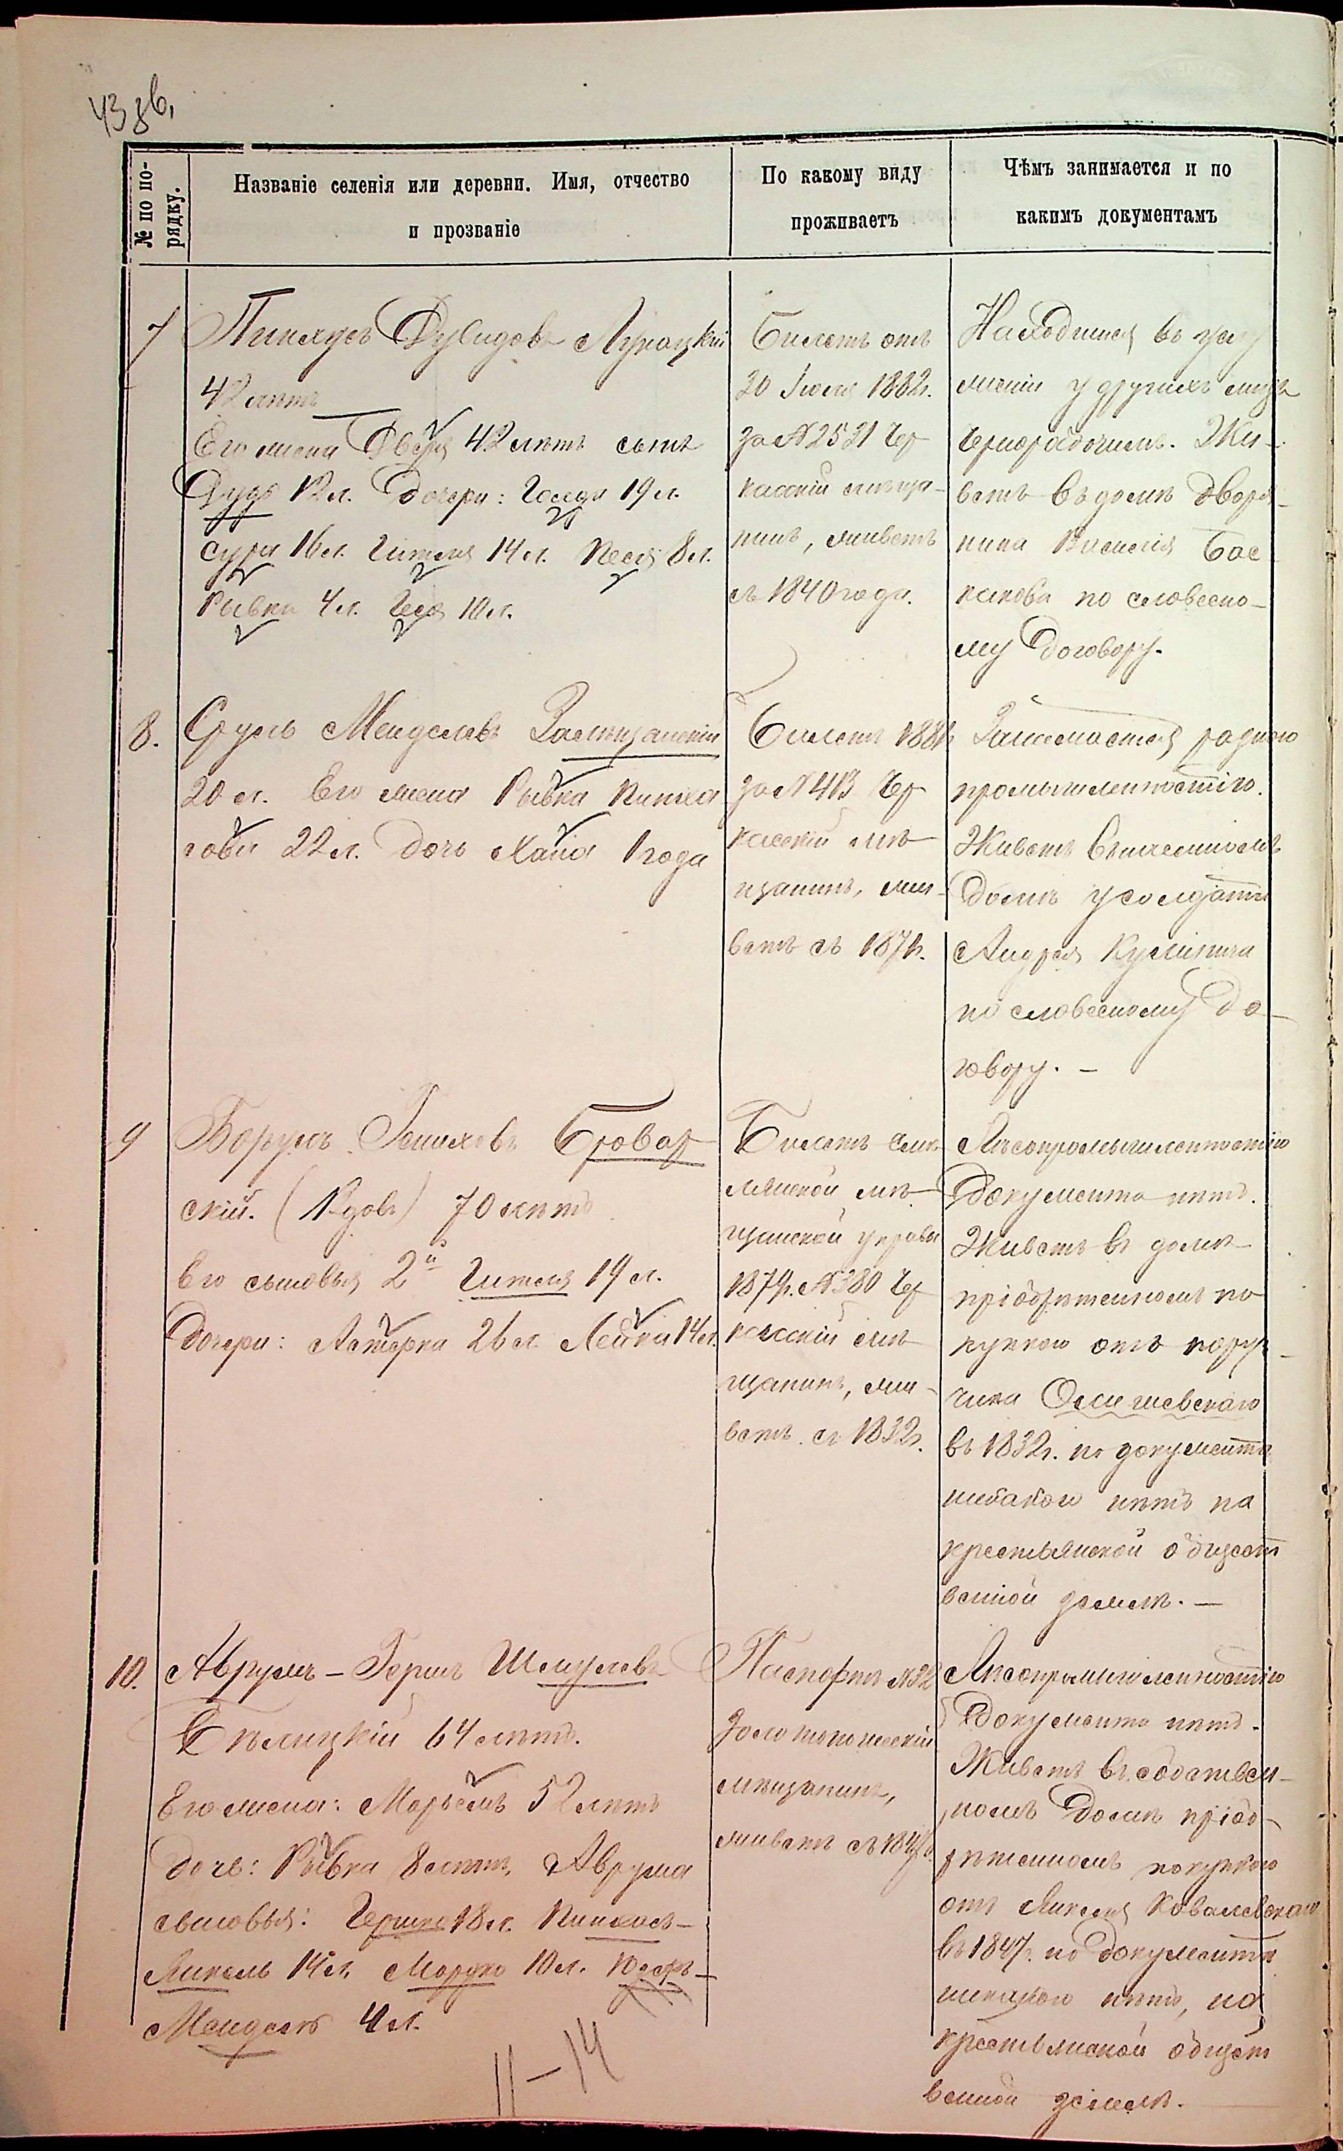 43 зв.
№ по по-
рядку.
Названіе селенія или деревни. Имя, отчество
и прозваніе
По какому виду
проживаетъ
Чѣмъ занимается и по
какимъ документамъ
7
Пинхусъ Дувидовъ
42 лѣтъ
Его жена Двейра 42 лѣтъ сынъ
Дудя 12 л. Дочери: Голда 19 л.
Сура 16 л. Гителя 14 л. Песя 8 л.
Рывка 4 л. Геся 10 л.
Билетъ отъ
20 Іюля 1882 г.
за № 2531 Чер
касскій мѣща-
нинъ, живетъ
съ 1840 года.
Находится въ услу
женіи у другихъ лицъ
чернорабочимъ. Жи-
ветъ въ домѣ дворя-
нина Василія Бас
какова по словесно-
му договору.
8.
Сруль Менделевъ
20 л. Его жена Рывка Пинха
сова 22 л. дочь Хана 1 года
Билетъ 1881 г.
за № 413 Чер
касскій мѣ
щанинъ, жи-
ветъ съ 1871 г.
Занимается разною
промышленностію.
Живетъ въ
домѣ у солдата
Андрея
по словесному до-
говору. —
9
Борухъ Гешковъ Бровар
скій. (Вдовъ) 70 лѣтъ
Его сыновья 2й Гителя 19 л.
Дочери: Лейка 14 л.
Билетъ Смѣ
лянской мѣ-
щанской управы
1879 г. № 380 Чер
касскій мѣ
щанинъ, жи-
ветъ съ 1832 г.
Лѣсопромышленностію
Документа нѣтъ.
Живетъ въ домѣ
пріобрѣтенномъ по
купкою отъ пору-
чика
въ 1832 г. но документа
никакого нѣтъ на
крестьянской общест
венной землѣ. —
10.
Аврумъ-Гершъ Шмулевъ
Бѣлицкій 64 лѣтъ.
Его жена: Марьемъ 52 лѣтъ
дочь: Рывка 8 лѣтъ, Аврума
сыновья: Гершко 18 л. Пинхасъ-
Янкель 14 л. Мордко 10 л. Юсфъ-
Мендель 4 л.
Паспортъ № 32
Золотоношскій
мѣщанинъ,
живетъ съ 1847 г.
Лѣсопромышленностію
Документа нѣтъ.
Живетъ въ собствен-
номъ домѣ пріоб-
рѣтенномъ покупкою
отъ Янкеля Ковалевскаго
въ 1847 г. но документа
никакого нѣтъ, на
крестьянской общест
венной землѣ.
11-14